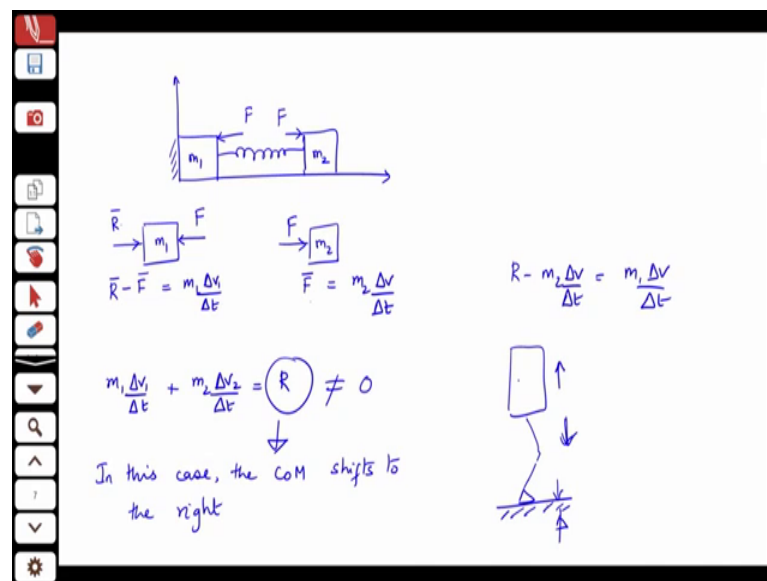 F F
m₁ m₂
R̄ F F
m₁ m₂
R̄ - F̄ = m₁ Δv₁/Δt F̄ = m₂ Δv/Δt R - m₂ Δv/Δt = m₁ Δv/Δt
m₁ Δv₁/Δt + m₂ Δv₂/Δt = R ≠ 0
In this case, the CoM shifts to
the right